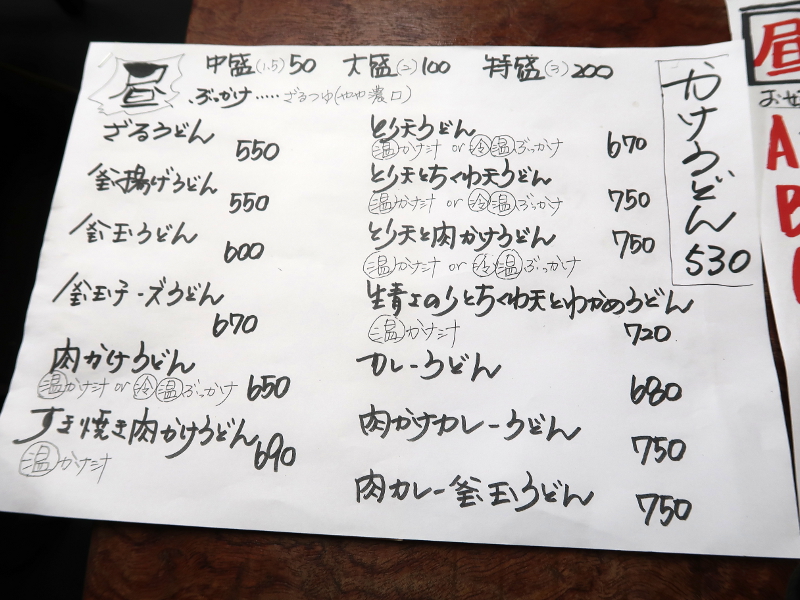 昼
中盛(1.5)50 大盛(2)100 特盛(3)200
ぶっかけ……ざるつゆ(やや濃口)
ざるうどん
550
釜揚げうどん
550
釜玉うどん
600
釜玉チーズうどん
670
肉かけうどん
温かけ汁 or 冷温ぶっかけ 650
すき焼き肉かけうどん 690
温かけ汁
とり天うどん
温かけ汁 or 冷温ぶっかけ 670
とり天とちくわ天うどん
温かけ汁 or 冷温ぶっかけ 750
とり天と肉かけうどん 750
温かけ汁 or 冷温ぶっかけ
生青よのりとちくわ天とわかめうどん
温かけ汁 720
カレーうどん
680
肉かけカレーうどん
750
肉カレー釜玉うどん
750
かけうどん
530
昼
A
B